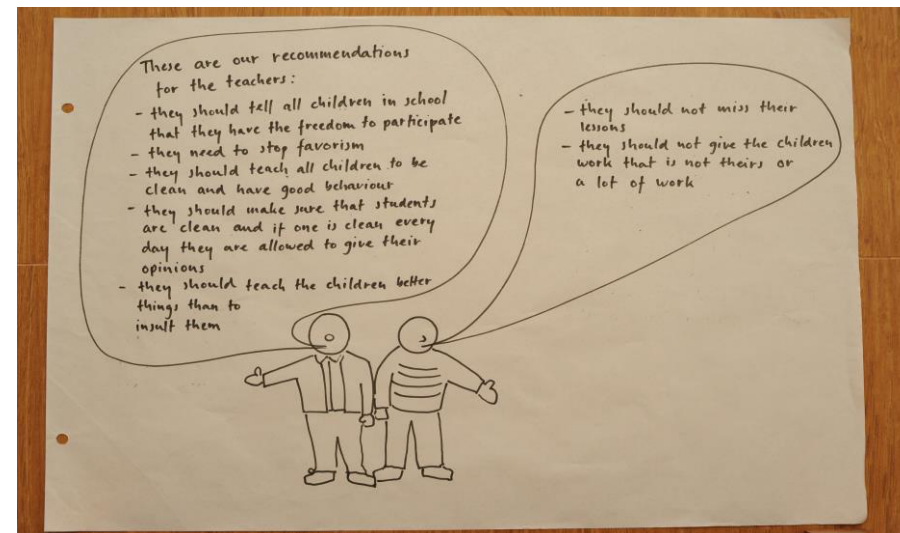 These are our recommendations
for the teachers:
- they should tell all children in school
that they have the freedom to participate
- they need to stop favorism
- they should teach all children to be
clean and have good behaviour
- they should make sure that students
are clean and if one is clean every
day they are allowed to give their
opinions
- they should teach the children better
things than to
insult them
- they should not miss their
lessons
- they should not give the children
work that is not theirs or
a lot of work